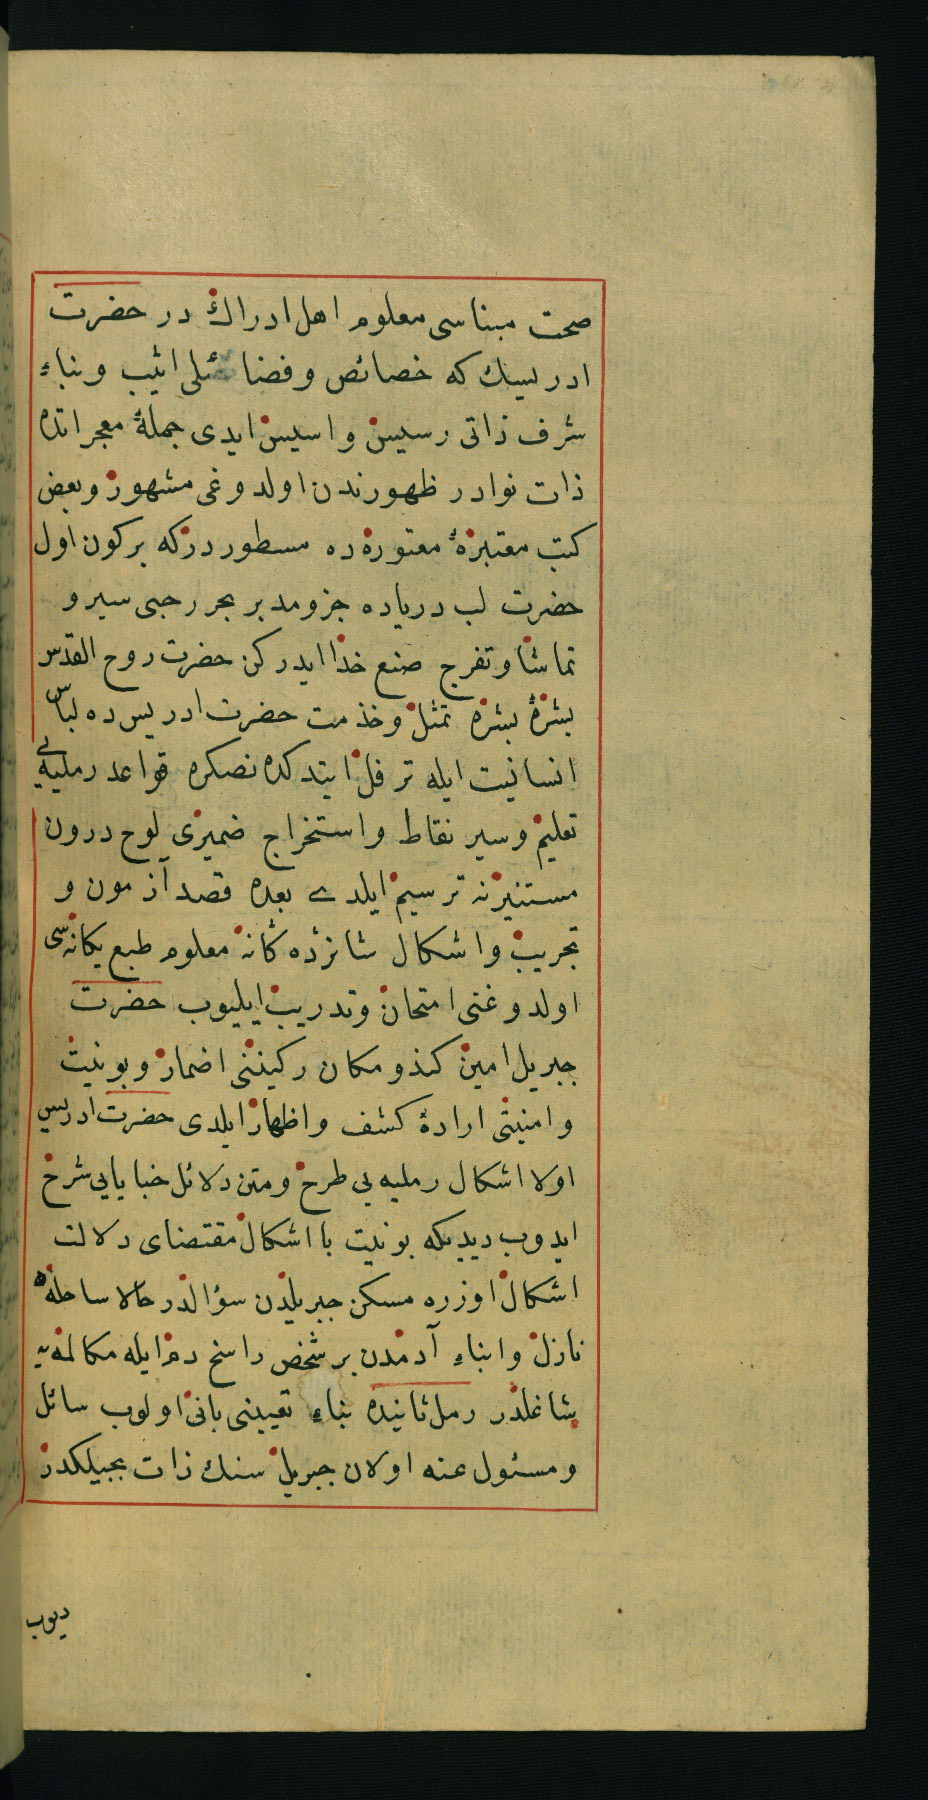 صحت مبناسی معلوم اهل ادراك در حضرت
ادریسك كه خصائص وفضائلی اثیب وبناءِ
شرف ذاتی رسیس واسیس ایدی جملۀ معجزاتده
ذات نوادر ظهورندن اولدوغی مشهور وبعض
كتب معتبرۀ معتوره ده مسطور در كه بركون اول
حضرت لب دریاده جزومد بر بحر رحبی سیر و
تماشا وتفرج صنع خدا ایدركن حضرت روح القدس
بشرۀ بشره تمثل وخدمت حضرت ادریس ده لباس
انسانیت ایله ترفل ایتدكدنصكره قواعد رملیه یی
تعلیم وسیر نقاط واستخراج ضمیری لوح درون
مستنیرنه ترسیم ایلدی بعده قصد آزمون و
تجریب واشكال شانزده كانه معلوم طبع یكانه سی
اولدوغنی امتحان وتدریب ایلیوب حضرت
جبریل امین كندو مكان ركیننی اضمار وبونیت
وامنیتی ارادۀ كشف واظهار ایلدی حضرت ادریس
اولا اشكال رملیه یی طرح ومتن دلائل خبایایی شرح
ایدوب دیدیكه بونیت با اشكال مقتضای دلالت
اشكال اوزره مسكن جبریلدن سؤالدر حالا ساحلۀ
نازل وابناءِ آدمدن برشخص راسخ دم ایله مكالمه یه
شاغلدر رمل ثانیده بناءِ تعییننی بانی اولوب سائل
ومسئول عنه اولان جبریل سنك ذات بجیلكدر
دیوب